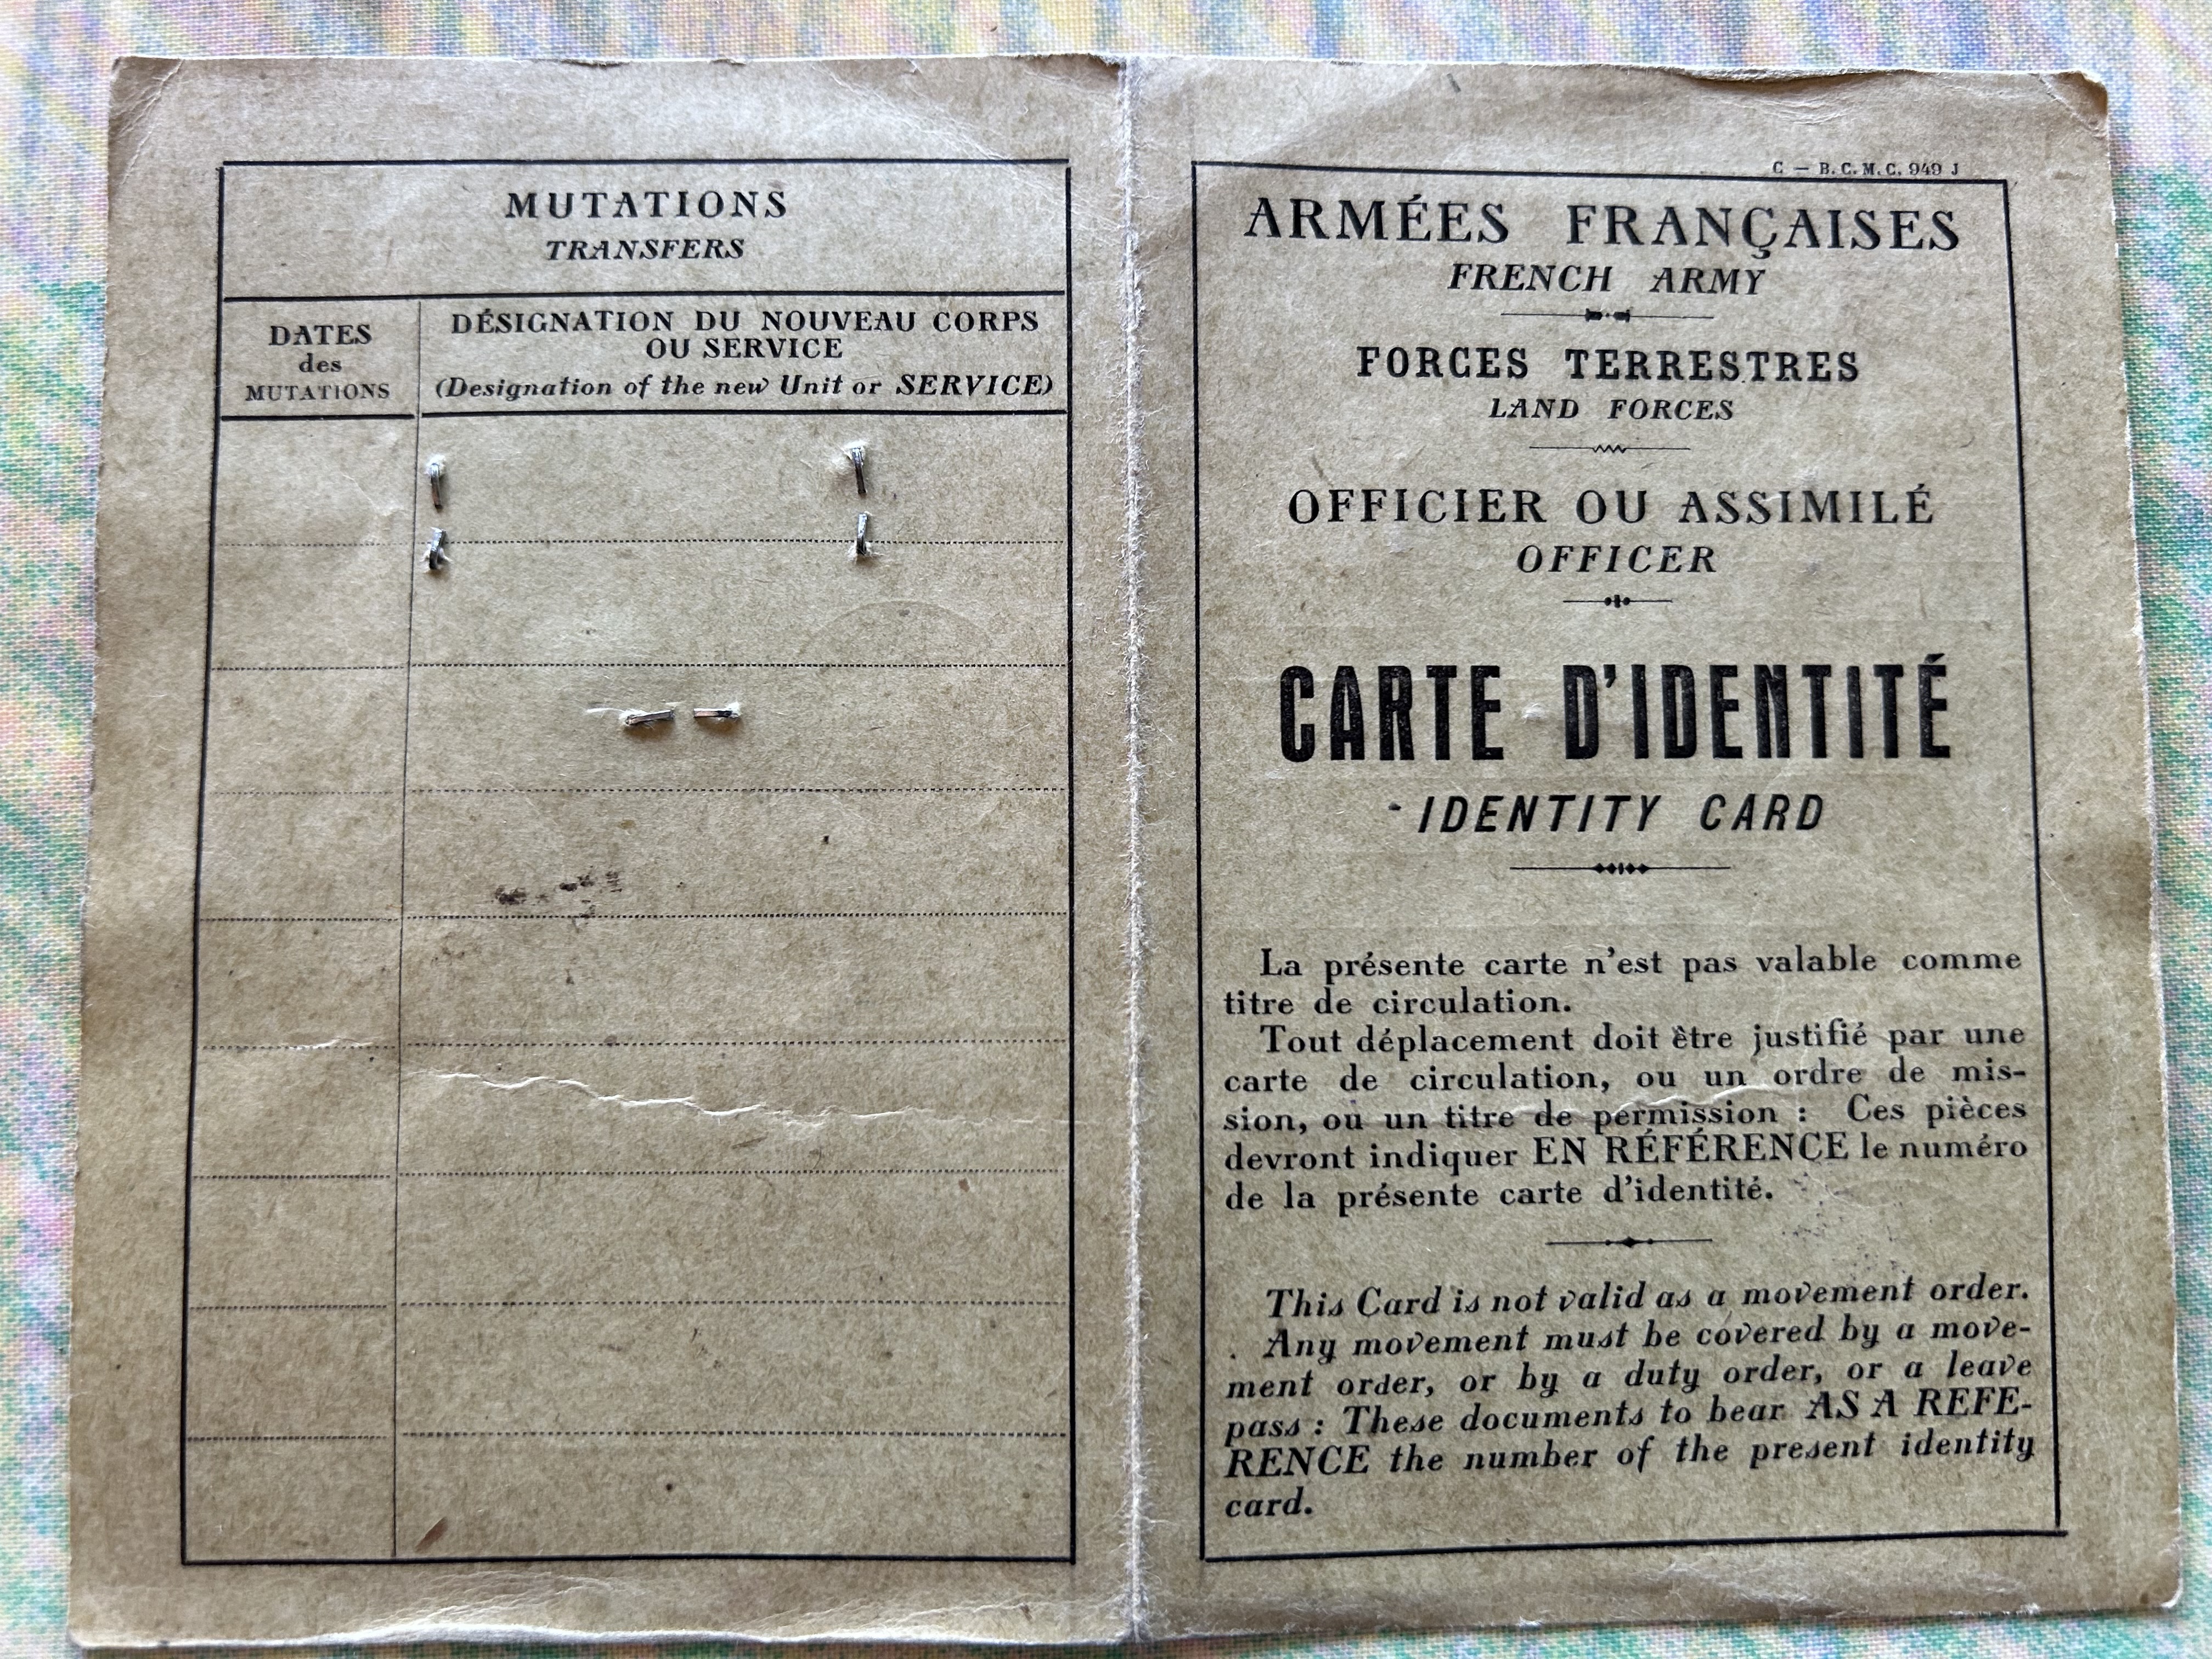 MUTATIONS
TRANSFERS
DATES
des
MUTATIONS
DÉSIGNATION DU NOUVEAU CORPS
OU SERVICE
(Designation of the new Unit or SERVICE)
C — B. C. M. C. 949 J
ARMÉES FRANÇAISES
FRENCH ARMY
FORCES TERRESTRES
LAND FORCES
OFFICIER OU ASSIMILÉ
OFFICER
CARTE D'IDENTITÉ
IDENTITY CARD
La présente carte n'est pas valable comme
titre de circulation.
Tout déplacement doit être justifié par une
carte de circulation, ou un ordre de mis-
sion, ou un titre de permission : Ces pièces
devront indiquer EN RÉFÉRENCE le numéro
de la présente carte d'identité.
This Card is not valid as a movement order.
Any movement must be covered by a move-
ment order, or by a duty order, or a leave
pass : These documents to bear AS A REFE-
RENCE the number of the present identity
card.